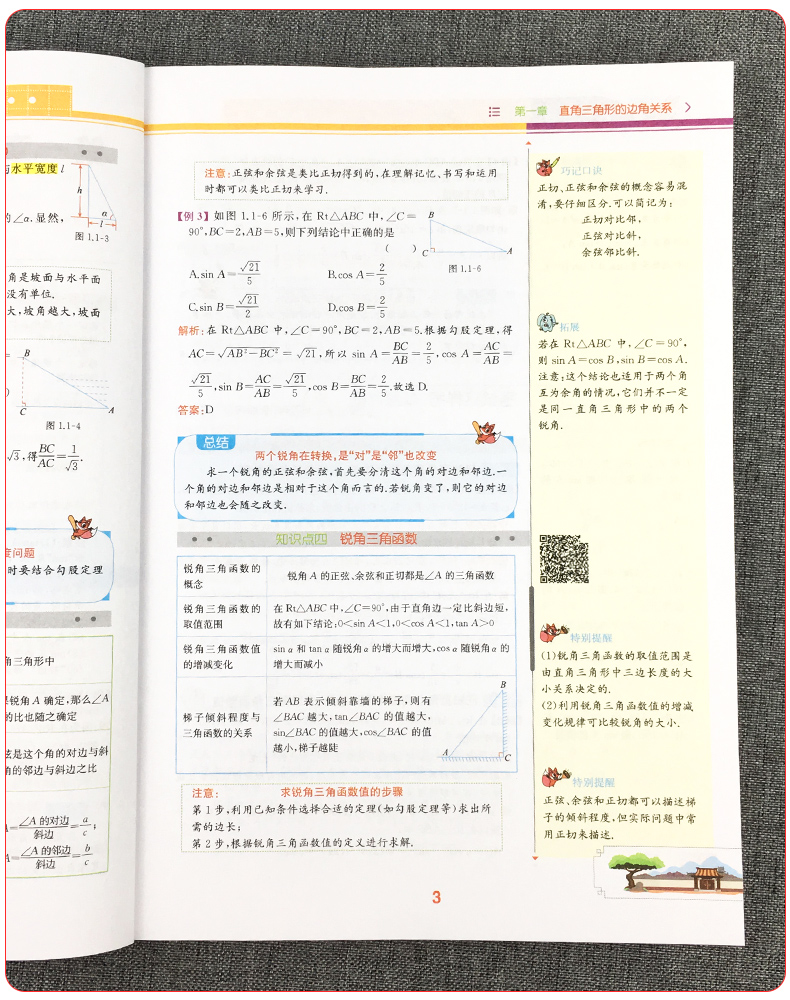 第一章 直角三角形的边角关系
与水平宽度 l
h
α
l
的∠α. 显然,
图 1.1-3
角是坡面与水平面
没有单位.
大,坡角越大,坡面
B
C
A
图 1.1-4
√3,得BC/AC=1/√3.
度问题
时要结合勾股定理
角三角形中
锐角 A 确定,那么∠A
的比也随之确定
弦是这个角的对边与斜
角的邻边与斜边之比
=∠A 的对边/斜边=a/c;
=∠A 的邻边/斜边=b/c
注意:正弦和余弦是类比正切得到的,在理解记忆、书写和运用
时都可以类比正切来学习.
【例 3】如图 1.1-6 所示,在 Rt△ABC 中,∠C=
90°,BC=2,AB=5,则下列结论中正确的是
( )
B
C
A
图 1.1-6
A.sin A=√21/5 B.cos A=2/5
C.sin B=√21/2 D.cos B=2/5
解析:在 Rt△ABC 中,∠C=90°,BC=2,AB=5.根据勾股定理,得
AC=√(AB²-BC²)=√21,所以 sin A=BC/AB=2/5,cos A=AC/AB=
√21/5,sin B=AC/AB=√21/5,cos B=BC/AB=2/5.故选 D.
答案:D
总结
两个锐角在转换,是“对”是“邻”也改变
求一个锐角的正弦和余弦,首先要分清这个角的对边和邻边.一
个角的对边和邻边是相对于这个角而言的.若锐角变了,则它的对边
和邻边也会随之改变.
知识点四 锐角三角函数
锐角三角函数的
概念
锐角 A 的正弦、余弦和正切都是∠A 的三角函数
锐角三角函数的
取值范围
在 Rt△ABC 中,∠C=90°,由于直角边一定比斜边短,
故有如下结论:0<sin A<1,0<cos A<1,tan A>0
锐角三角函数值
的增减变化
sin α 和 tan α 随锐角 α 的增大而增大,cos α 随锐角 α 的
增大而减小
梯子倾斜程度与
三角函数的关系
若 AB 表示倾斜靠墙的梯子,则有
∠BAC 越大,tan∠BAC 的值越大,
sin∠BAC 的值越大,cos∠BAC 的值
越小,梯子越陡
B
A
C
注意: 求锐角三角函数值的步骤
第 1 步,利用已知条件选择合适的定理(如勾股定理等)求出所
需的边长;
第 2 步,根据锐角三角函数值的定义进行求解.
巧记口诀
正切、正弦和余弦的概念容易混
淆,要仔细区分.可以简记为:
正切对比邻,
正弦对比斜,
余弦邻比斜.
拓展
若在 Rt△ABC 中,∠C=90°,
则 sin A=cos B,sin B=cos A.
注意:这个结论也适用于两个角
互为余角的情况,它们并不一定
是同一直角三角形中的两个
锐角.
特别提醒
(1)锐角三角函数的取值范围是
由直角三角形中三边长度的大
小关系决定的.
(2)利用锐角三角函数值的增减
变化规律可比较锐角的大小.
特别提醒
正弦、余弦和正切都可以描述梯
子的倾斜程度,但实际问题中常
用正切来描述.
3